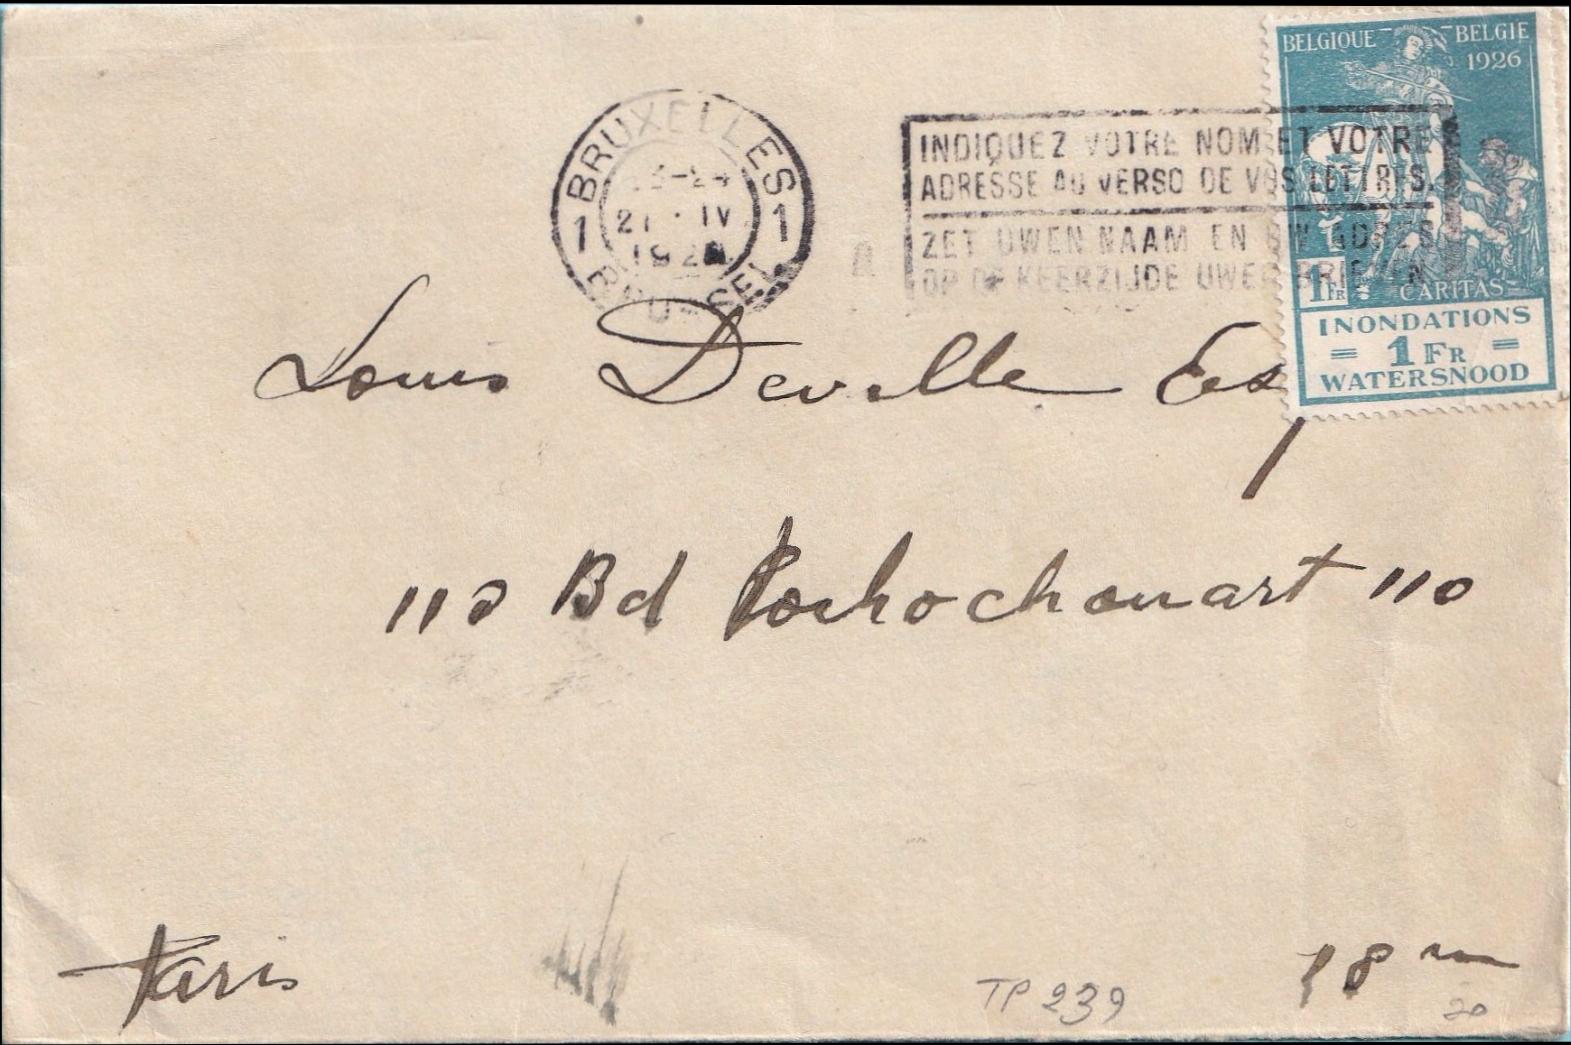 BELGIQUE BELGIE
1926
BRUXELLES
1 1
21 IV
BRUSSEL
INDIQUEZ VOTRE NOM ET VOTRE
ADRESSE AU VERSO DE VOS LETTRES.
ZET UWEN NAAM EN UW ADRES
OP DE KEERZIJDE UWER BRIEVEN
1 FR
CARITAS
INONDATIONS
= 1 FR =
WATERSNOOD
Louis Deville Esq
110 Bd Rochechouart 110
Paris
18 me
TP 239
20